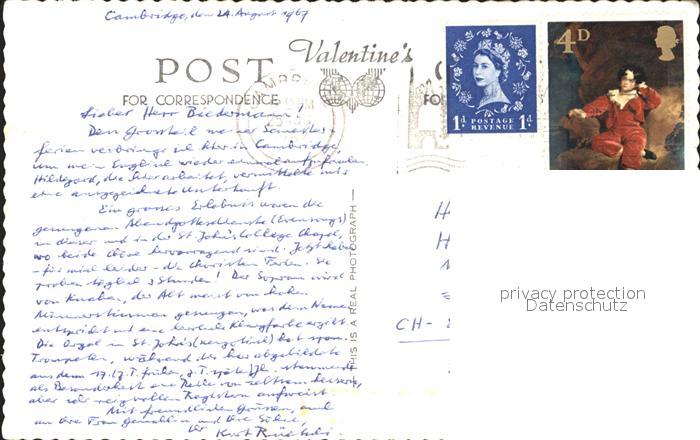 Cambridge, den 24. August 1967
Valentine's
POST
FOR CORRESPONDENCE
FO
1d POSTAGE REVENUE 1d
4D
Lieber Herr Biedermann!
Den Grossteil meiner Semester-
ferien verbringe ich hier in Cambridge,
um mein Englisch wieder einmal aufzufrischen.
Hildegard, die hier arbeitet, vermittelte mir
eine ausgezeichnete Unterkunft.
Ein grosses Erlebnis waren die
gesungenen Abendgottesdienste (Evensongs)
in dieser und in der St John's College Chapel,
wo beide Chöre hervorragend sind. Jetzt haben
- für mich leider - die Choristen Ferien. Sie
proben täglich 3 Stunden! Der Sopran wird
von Knaben, der Alt meist von hohen
Männerstimmen gesungen, was dem Namen
entspricht und eine herrliche Klangfarbe ergibt.
Die Orgel in St. John's (neugotisch) hat span.
Trompeten, während die hier abgebildete
aus dem 17. (z.T. früher, z.T. später) Jh. stammende
als Besonderheit eine Reihe von seltsam
aber sehr reizvollen Registern aufweist.
Mit freundlichen Grüssen, auch
an Ihre Frau Gemahlin und Ihre Söhne,
Ihr Kurt
THIS IS A REAL PHOTOGRAPH
CH-
privacy protection
Datenschutz